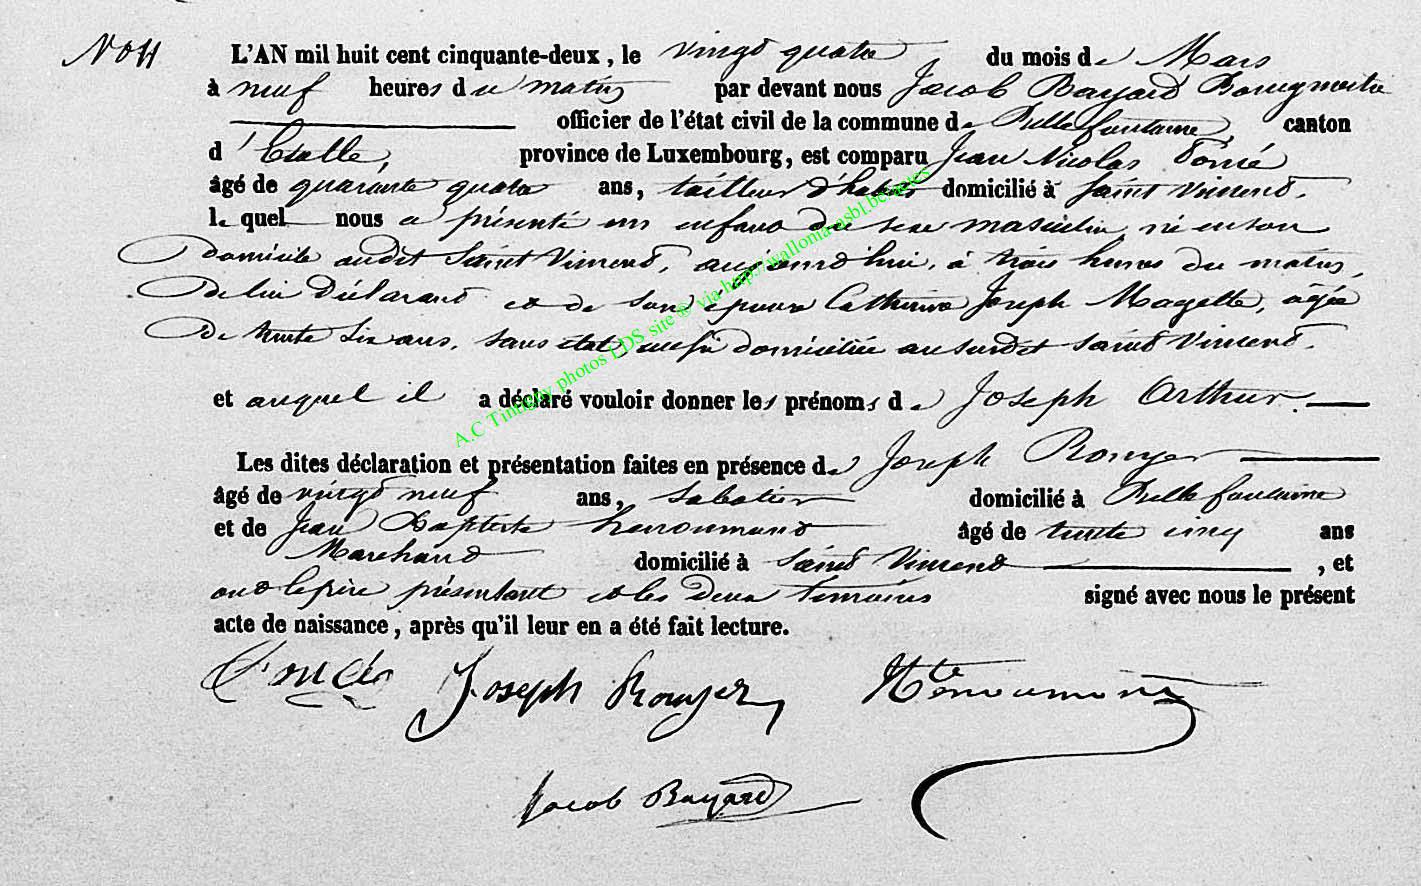 L'AN mil huit cent cinquante-deux, le vingt quatre du mois de Mars
à neuf heures du matin par devant nous Jacob Bayard Bourgmestre
officier de l'état civil de la commune de Bellefontaine, canton
d'Etalle, province de Luxembourg, est comparu Jean Nicolas
âgé de quarante quatre ans, tailleur d'habits domicilié à Saint Vincent.
lequel nous a présenté un enfant du sexe masculin, né en son
domicile audit Saint Vincent, aujourd'hui, à trois heures du matin,
de lui Déclarant et de son épouse Catherine Joseph Magette, âgée
de trente six ans, sans état, aussi domiciliée au susdit Saint Vincent.
et auquel il a déclaré vouloir donner les prénoms de Joseph Arthur.
Les dites déclaration et présentation faites en présence de Joseph Rouyer
âgé de vingt neuf ans, sabotier domicilié à Bellefontaine
et de Jean Baptiste âgé de trente cinq ans
Marchand domicilié à Saint Vincent, et
ont le père présentant et les deux témoins signé avec nous le présent
acte de naissance, après qu'il leur en a été fait lecture.
Joseph Rouyer
Jacob Bayard
A.C Tintigny photos LDS site © via http://wallonia-asbl.be/actes